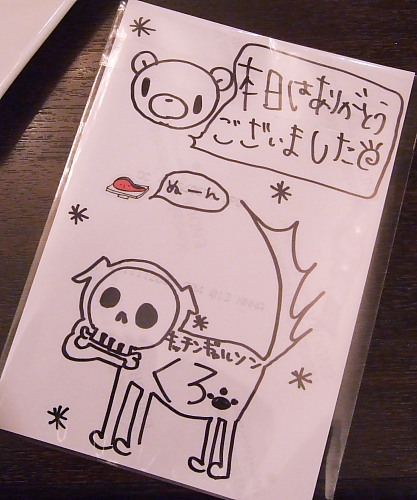 本日はありがとう
ございました
ぬーん
キッチンギョルソン
くろ